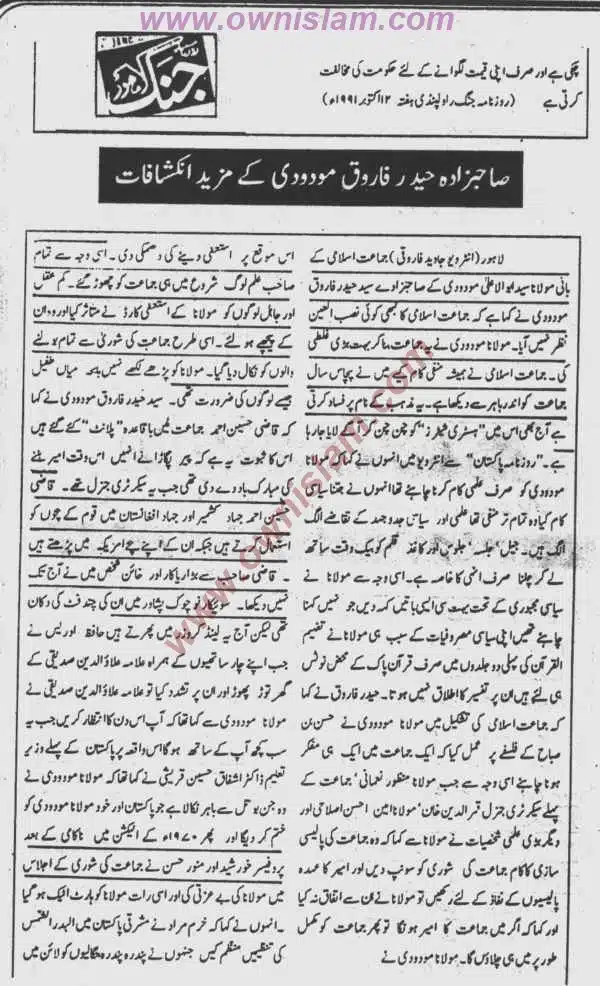 www.ownislam.com
روزنامہ
جنگ
لاہور
چکی ہے اور صرف اپنی قیمت لگوانے کے لئے حکومت کی مخالفت
کرتی ہے (روزنامہ جنگ راولپنڈی ہفتہ ۱۲ اکتوبر ۱۹۹۱ء)
صاحبزادہ حیدر فاروق مودودی کے مزید انکشافات
لاہور (انٹرویو جاوید فاروقی) جماعت اسلامی کے
بانی مولانا سید ابوالاعلیٰ مودودی کے صاحبزادے سید حیدر فاروق
مودودی نے کہا ہے کہ جماعت اسلامی کا کبھی کوئی نصب العین
نظر نہیں آیا۔ مولانا مودودی نے یہ جماعت بنا کر بہت بڑی غلطی
کی۔ جماعت اسلامی نے ہمیشہ منفی کام کیے میں نے پچاس سال
جماعت کو اندر باہر سے دیکھا ہے۔ یہ مذہب کے نام پر فساد کرتی
ہے آج بھی اس میں "ہسٹری شیٹرز" کو چن چن کر آگے لایا جا رہا
ہے۔ "روزنامہ پاکستان" سے انٹرویو میں انہوں نے کہا کہ مولانا
مودودی کو صرف علمی کام کرنا چاہئے تھا انہوں نے جتنا سیاسی
کام کیا وہ تمام تر منفی تھا علمی اور سیاسی جدوجہد کے تقاضے الگ
الگ ہیں۔ جیل، جلسہ، جلوس اور کاغذ قلم کو بیک وقت ساتھ
لے کر چلنا صرف انہی کا خاصہ ہے۔ اسی وجہ سے مولانا نے
سیاسی مجبوری کے تحت بہت سی ایسی باتیں کہہ دیں جو نہیں کہنا
چاہئے تھیں اپنی سیاسی مصروفیات کے سبب ہی مولانا نے تفہیم
القرآن کی پہلی دو جلدوں میں صرف قرآن پاک کے محض نوٹس
ہی لئے ہیں ان پر تفسیر کا اطلاق نہیں ہوتا۔ حیدر فاروق نے کہا
کہ جماعت اسلامی کی تشکیل میں مولانا مودودی نے حسن بن
صباح کے فلسفے پر عمل کیا کہ ایک جماعت میں ایک ہی مفکر
ہونا چاہئے اسی وجہ سے جب مولانا منظور نعمانی، جماعت کے
پہلے سیکرٹری جنرل قمر الدین خان، مولانا امین احسن اصلاحی اور
دیگر بڑی علمی شخصیات نے مولانا سے کہا کہ وہ جماعت کی پالیسی
سازی کا کام جماعت کی شوریٰ کو سونپ دیں اور امیر کا عہدہ
پالیسیوں کے نفاذ کے لئے رکھیں تو مولانا نے ان سے اتفاق نہ کیا
اور کہا کہ اگر میں جماعت کا امیر ہونگا تو پھر جماعت کو مکمل
طور پر میں ہی چلاؤں گا۔ مولانا مودودی نے
اس موقع پر استعفیٰ دینے کی دھمکی دی۔ اسی وجہ سے تمام
صاحب علم لوگ شروع میں ہی جماعت کو چھوڑ گئے۔ کم عقل
اور جاہل لوگوں کو مولانا کے استعفیٰ کارڈ نے متاثر کیا اور وہ ان
کے پیچھے ہو لئے۔ اسی طرح جماعت کی شوریٰ سے تمام بولنے
والوں کو نکال دیا گیا۔ مولانا کو پڑھے لکھے نہیں بلکہ میاں طفیل
جیسے لوگوں کی ضرورت تھی۔ سید حیدر فاروق مودودی نے کہا
کہ قاضی حسین احمد جماعت میں باقاعدہ "پلانٹ" کئے گئے ہیں
اس کا ثبوت یہ ہے کہ پیر پگاڑا نے انہیں اس وقت امیر بننے
کی مبارک باد دے دی تھی جب یہ سیکرٹری جنرل تھے۔ قاضی
حسین احمد جہاد کشمیر اور جہاد افغانستان میں قوم کے بچوں کو
استعمال کرتے ہیں جبکہ ان کے اپنے بچے امریکہ میں پڑھتے ہیں
۔ قاضی صاحب سے بڑا ریاکار اور خائن شخص میں نے آج تک
نہیں دیکھا۔ سوئیکارنو چوک پشاور میں ان کی چند فٹ کی دکان
تھی لیکن آج یہ لینڈ کروزر میں پھرتے ہیں حافظ ادریس نے
جب اپنے چار ساتھیوں کے ہمراہ علامہ علاؤالدین صدیقی کے
گھر توڑ پھوڑ اور ان پر تشدد کیا تو علامہ علاؤالدین صدیقی نے
مولانا مودودی سے کہا تھا کہ آپ اس دن کا انتظار کریں جب یہ
سب کچھ آپ کے ساتھ ہو گا اس واقعہ پر پاکستان کے پہلے وزیر
تعلیم ڈاکٹر اشفاق حسین قریشی نے کہا تھا کہ مولانا مودودی نے
وہ جن بوتل سے باہر نکالا ہے جو پاکستان اور خود مولانا مودودی کو
ختم کر دیگا اور پھر ۱۹۷۰ء کے الیکشن میں ناکامی کے بعد
پروفیسر خورشید اور منور حسن نے جماعت کی شوریٰ کے اجلاس
میں مولانا کی بے عزتی کی اور اسی رات مولانا کو ہارٹ اٹیک ہو گیا
۔ انہوں نے کہا کہ خرم مراد نے مشرقی پاکستان میں البدر الشمس
کی تنظیمیں منظم کیں جنہوں نے پندرہ پندرہ بنگالیوں کو لائن میں
www.ownislam.com